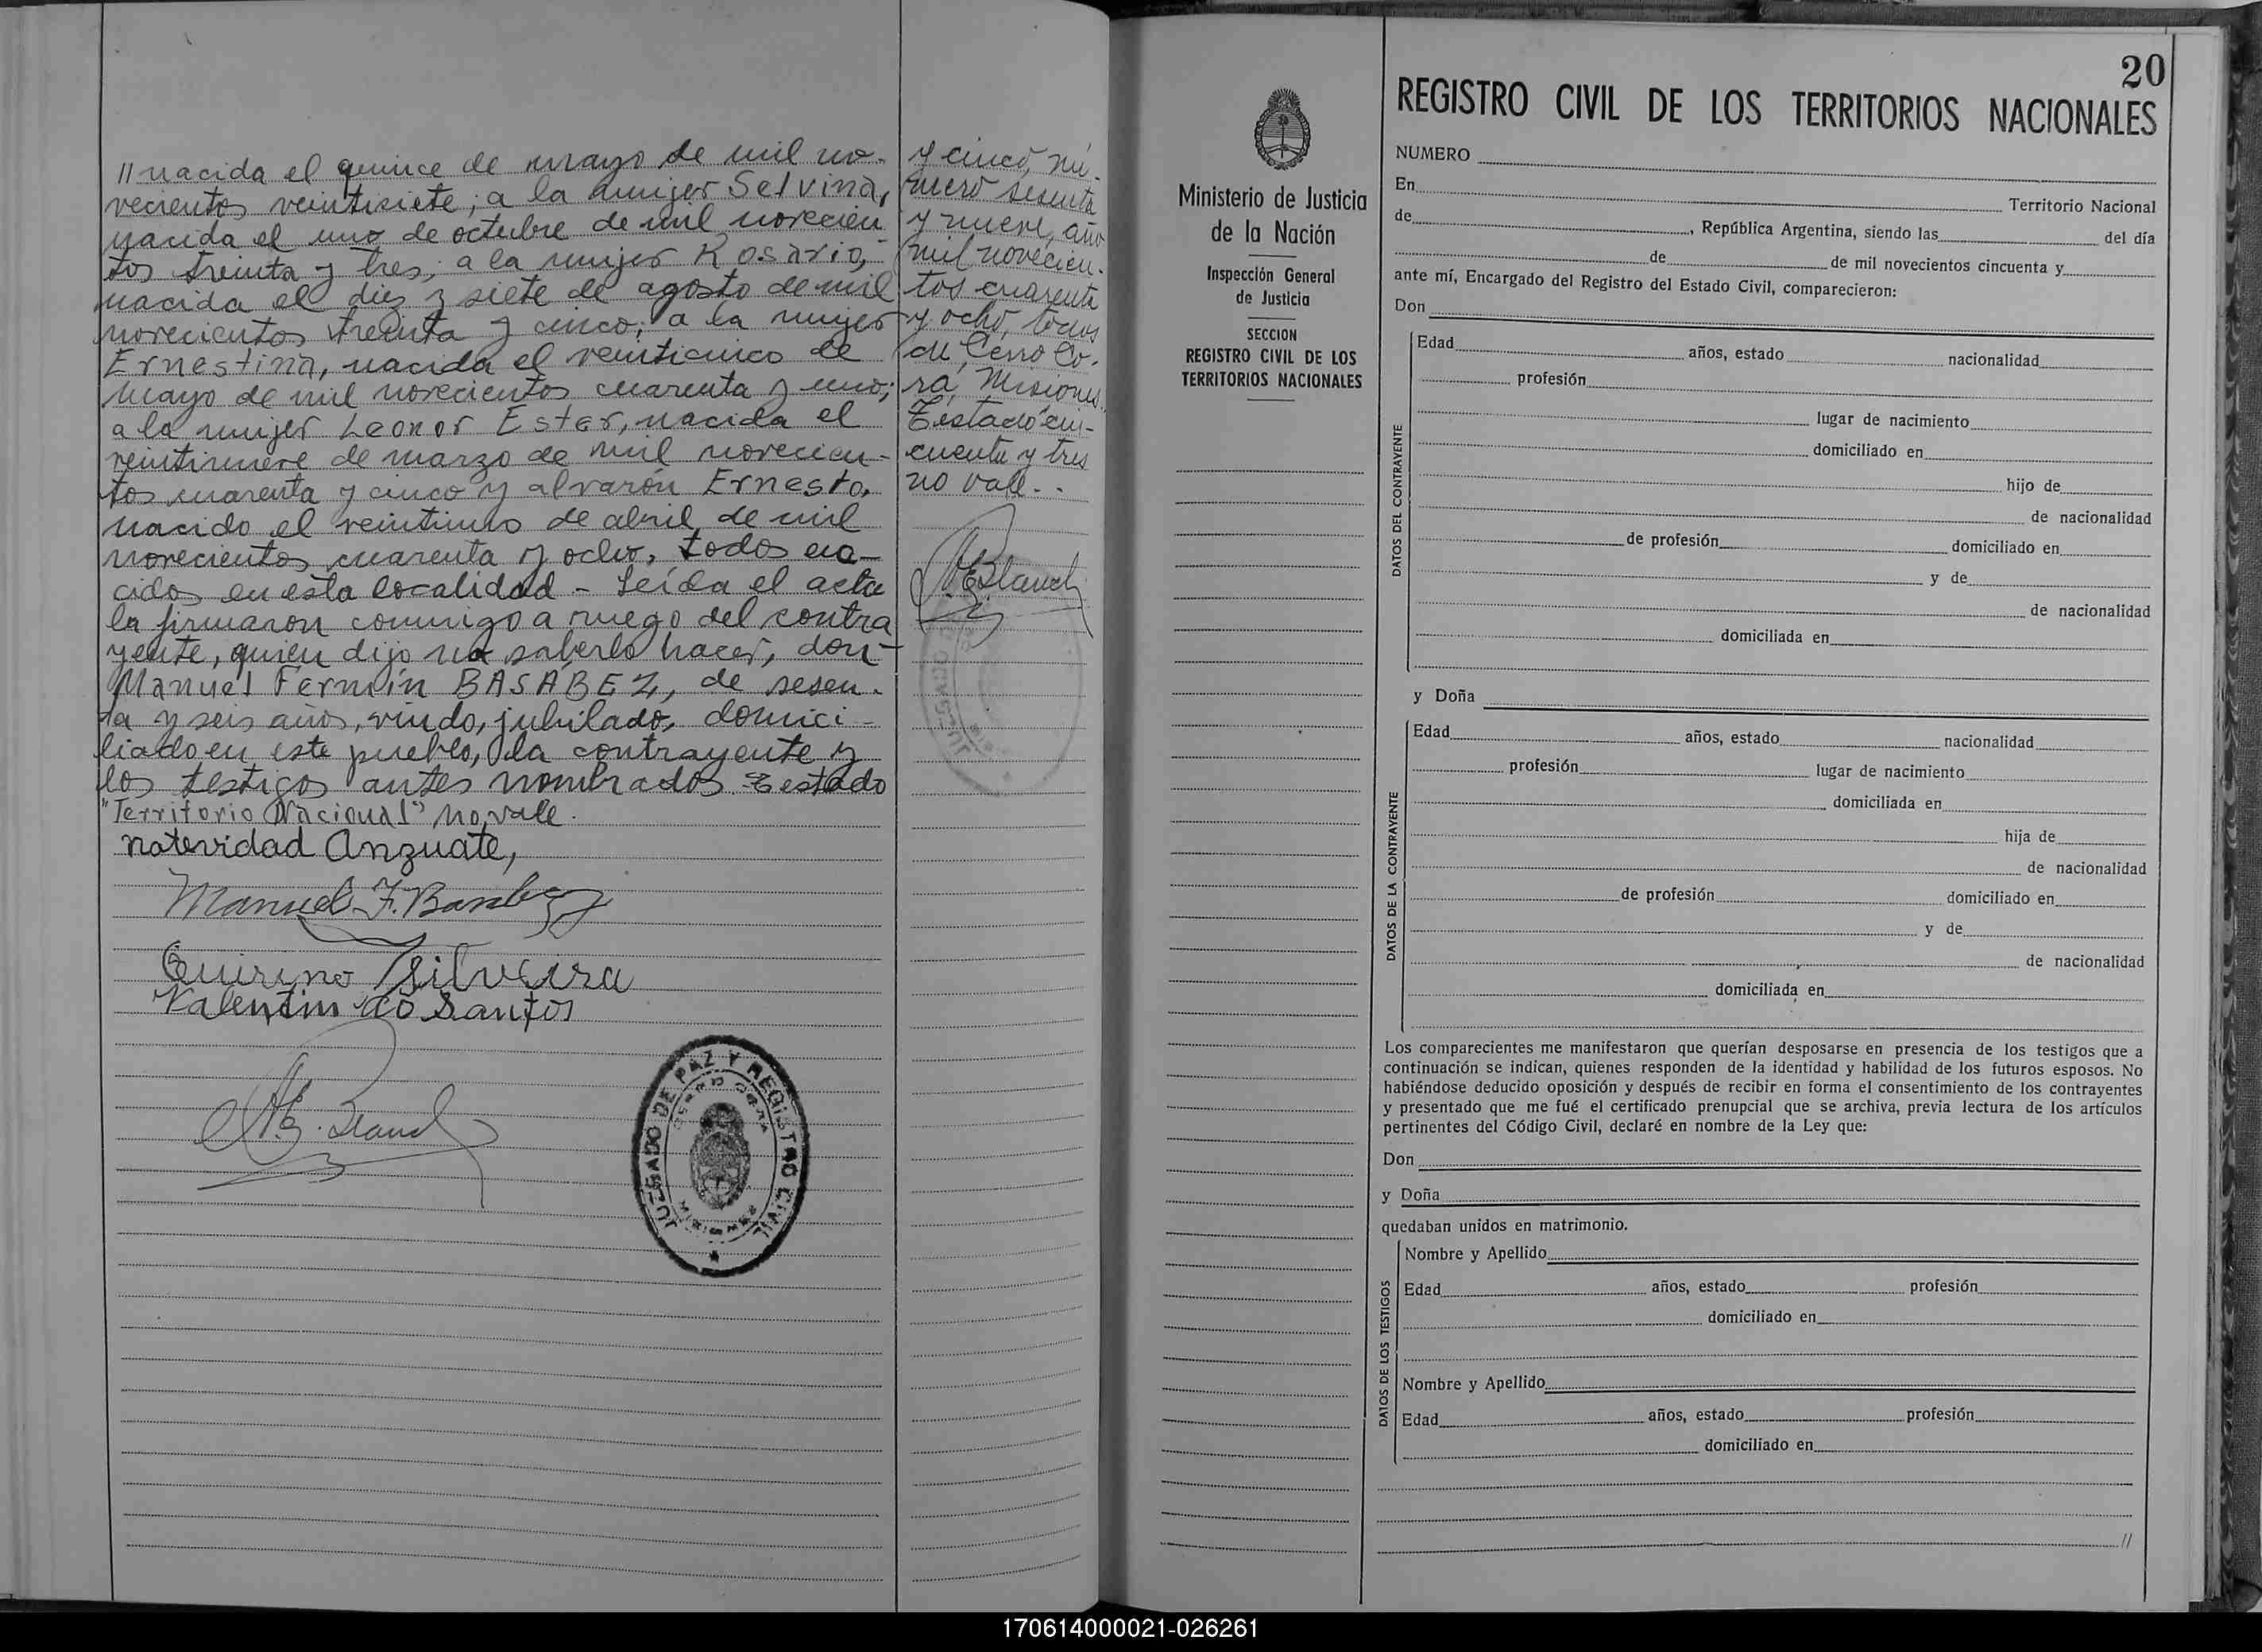 // nacida el quince de mayo de mil no-
vecientos veintisiete; a la mujer Selvina,
nacida el uno de octubre de mil novecien
tos treinta y tres; a la mujer Rosario,
nacida el dies y siete de agosto de mil
novecientos treinta y cinco; a la mujer
Ernestina, nacida el veinticinco de
mayo de mil novecientos cuarenta y uno;
a la mujer Leonor Ester, nacida el
veintinueve de marzo de mil novecien-
tos cuarenta y cinco y al varón Ernesto,
nacido el veintiuno de abril de mil
novecientos cuarenta y ocho, todos na-
cidos en esta localidad - Leída el acta
la firmaron conmigo a ruego del contra
yente, quien dijo no saberlo hacer, don
Manuel Fermín BASABEZ, de sesen-
ta y seis años, viudo, jubilado, domici-
liado en este pueblo, la contrayente y
los testigos antes nombrados - Testado
"Territorio Nacional" no vale.
natevidad Anzuate,
Manuel F. Basabez
Quirino Silveira
Valentin do Santos
JUZGADO DE PAZ Y REGISTRO CIVIL
CERRO CORA
MISIONES
y cinco, nú-
mero sesenta
y nueve, año
mil novecien-
tos cuarenta
y ocho, todos
de Cerro Co-
rá, Misiones.
Testado "cin-
cuenta y tres
no vale.-
20
Ministerio de Justicia
de la Nación
Inspección General
de Justicia
SECCION
REGISTRO CIVIL DE LOS
TERRITORIOS NACIONALES
REGISTRO CIVIL DE LOS TERRITORIOS NACIONALES
NUMERO
En Territorio Nacional
de , República Argentina, siendo las del día
de de mil novecientos cincuenta y
ante mí, Encargado del Registro del Estado Civil, comparecieron:
Don
DATOS DEL CONTRAYENTE
Edad años, estado nacionalidad
profesión
lugar de nacimiento
domiciliado en
hijo de
de nacionalidad
de profesión domiciliado en
y de
de nacionalidad
domiciliada en
y Doña
DATOS DE LA CONTRAYENTE
Edad años, estado nacionalidad
profesión lugar de nacimiento
domiciliada en
hija de
de nacionalidad
de profesión domiciliado en
y de
de nacionalidad
domiciliada en
Los comparecientes me manifestaron que querían desposarse en presencia de los testigos que a
continuación se indican, quienes responden de la identidad y habilidad de los futuros esposos. No
habiéndose deducido oposición y después de recibir en forma el consentimiento de los contrayentes
y presentado que me fué el certificado prenupcial que se archiva, previa lectura de los artículos
pertinentes del Código Civil, declaré en nombre de la Ley que:
Don
y Doña
quedaban unidos en matrimonio.
DATOS DE LOS TESTIGOS
Nombre y Apellido
Edad años, estado profesión
domiciliado en
Nombre y Apellido
Edad años, estado profesión
domiciliado en
//
170614000021-026261